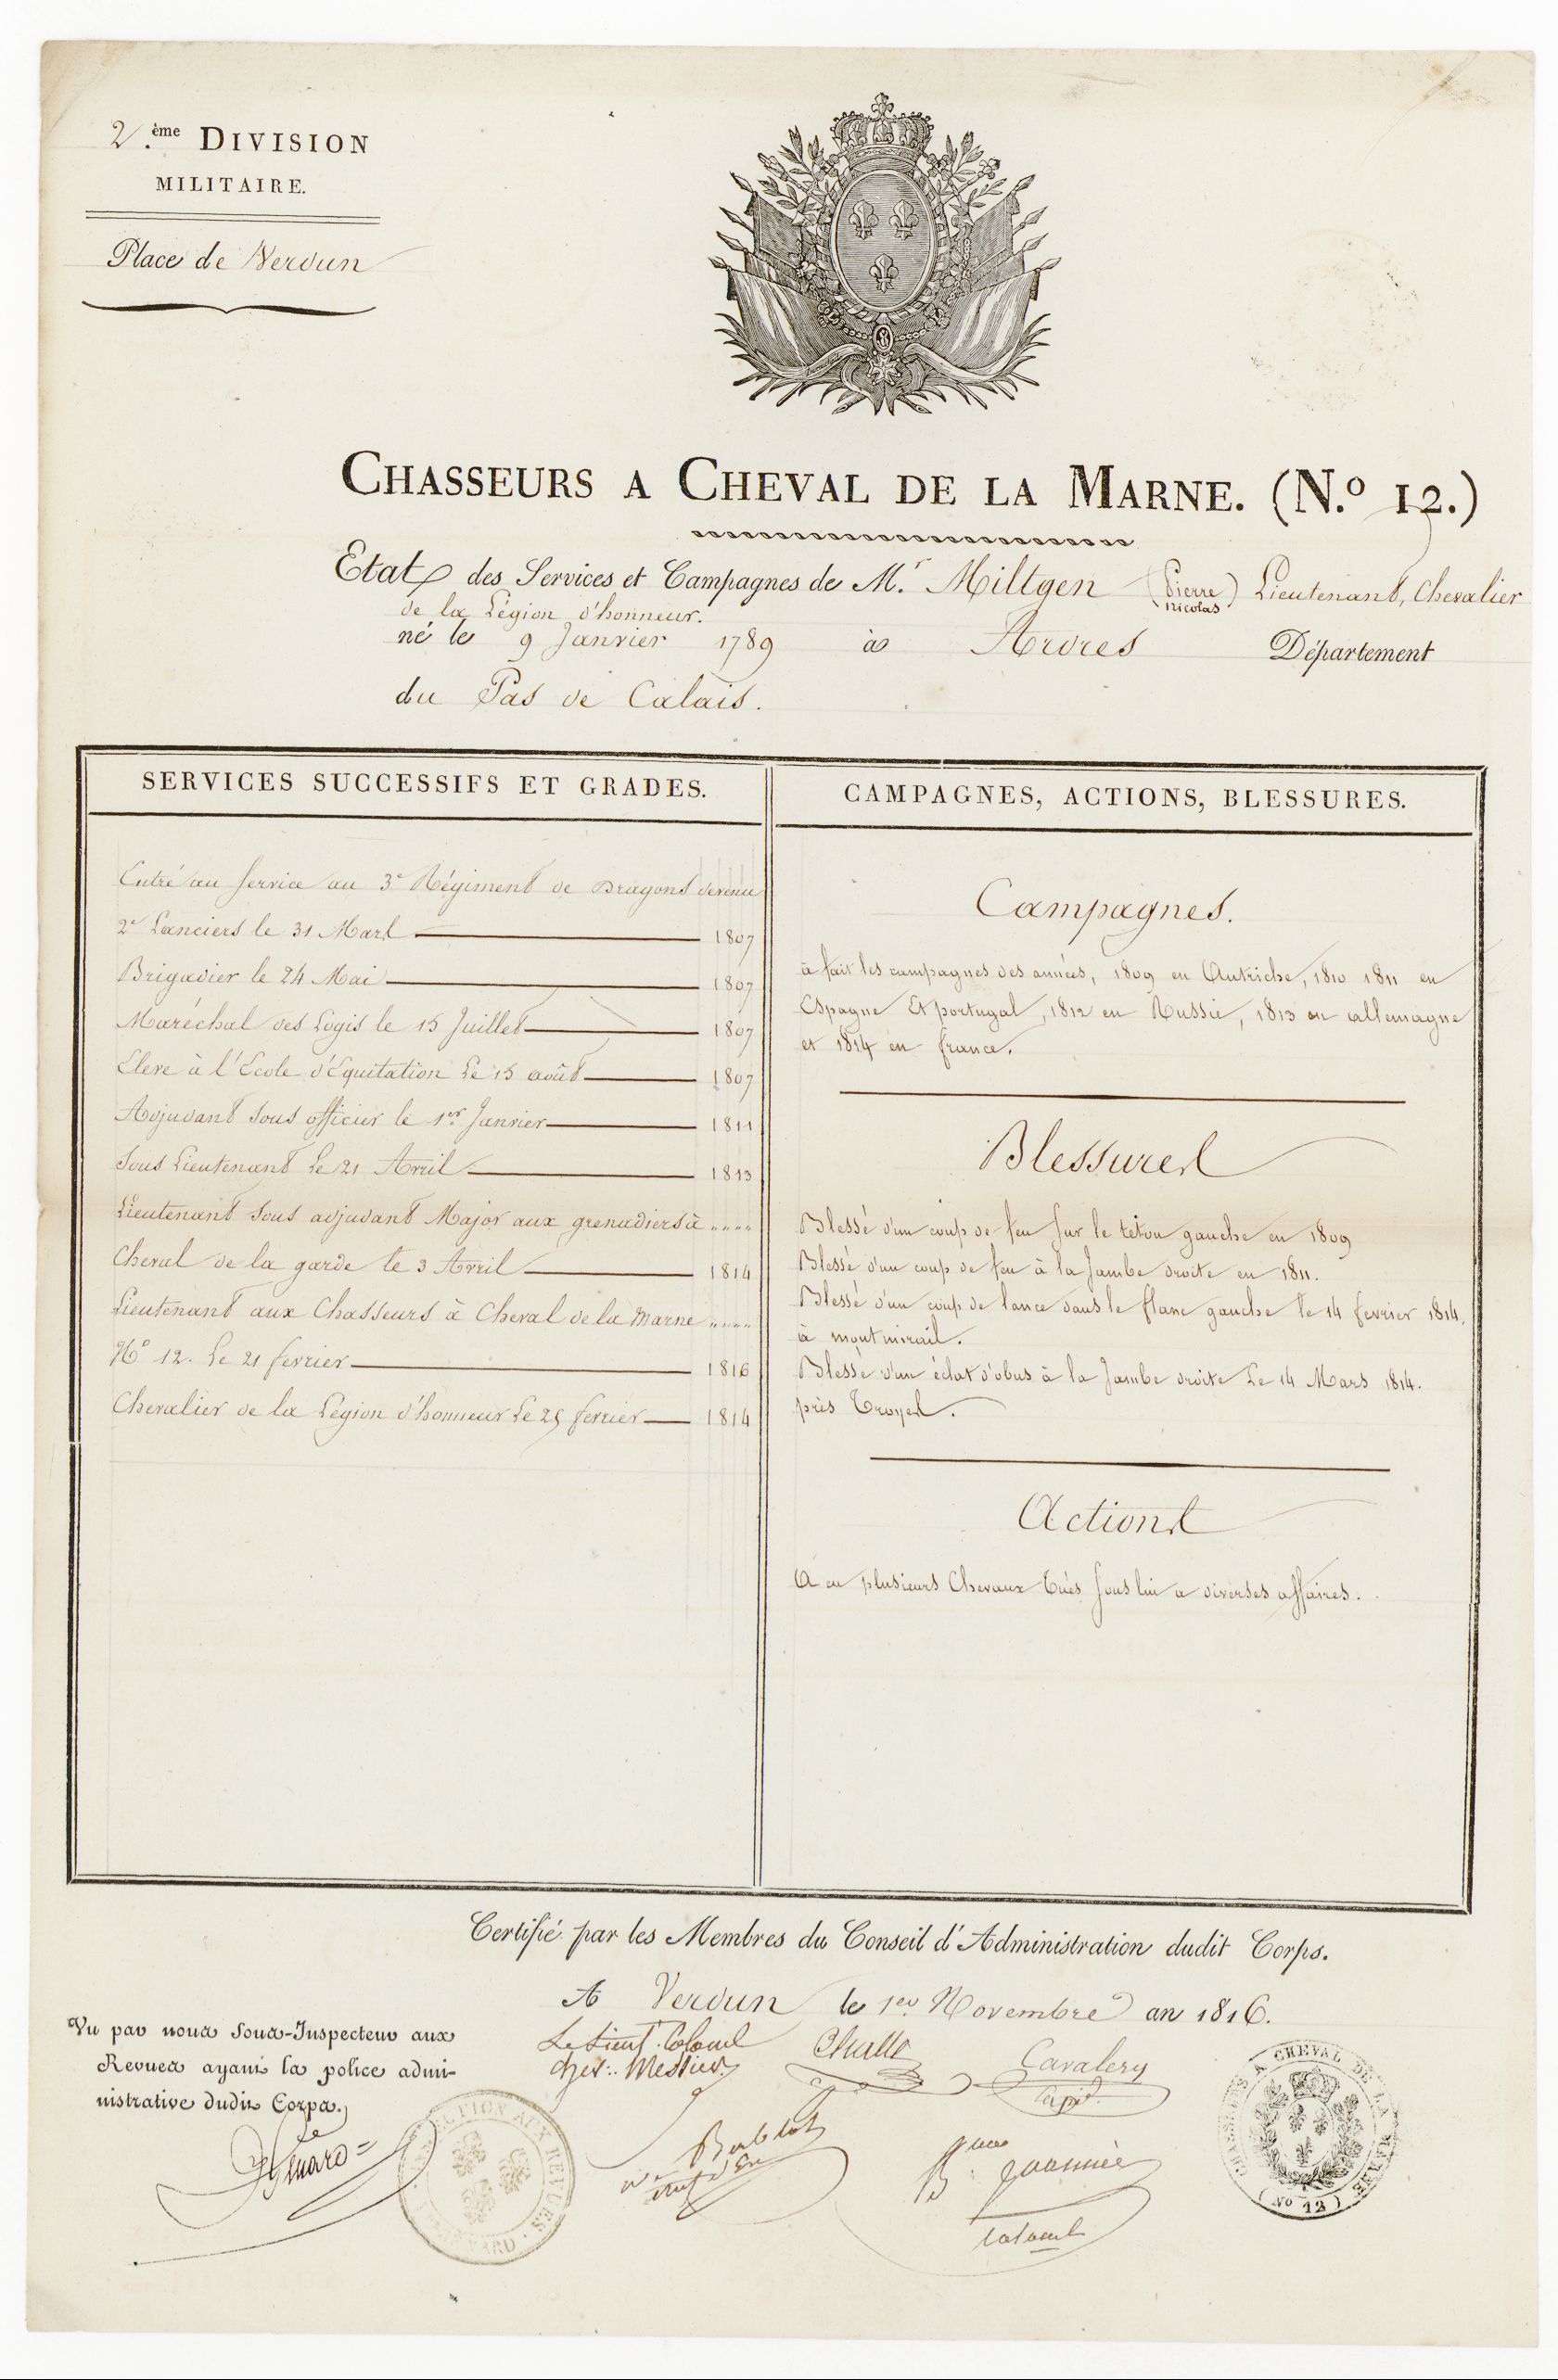 2.ème DIVISION
MILITAIRE.
Place de Verdun
CHASSEURS A CHEVAL DE LA MARNE. (N.º 12.)
Etat des Services et Campagnes de M.r Miltgen (Pierre nicolas) Lieutenant, Chevalier
de la Légion d'honneur.
né le 9 Janvier 1789 à Ardres Département
du Pas de Calais.
SERVICES SUCCESSIFS ET GRADES.
Entré au Service au 3e Régiment de Dragons devenu
2e Lanciers le 31 Mars 1807
Brigadier le 24 Mai 1807
Maréchal des Logis le 15 Juillet 1807
Eleve à l'Ecole d'Equitation Le 15 août 1807
Adjudant Sous officier le 1er Janvier 1811
Sous Lieutenant Le 21 Avril 1813
Lieutenant Sous adjudant Major aux grenadiers à "...."
Cheval de la garde le 3 Avril 1814
Lieutenant aux Chasseurs à Cheval de la Marne "...."
Nº 12. Le 21 fevrier 1816
Chevalier de la Légion d'honneur Le 25 fevrier 1814
CAMPAGNES, ACTIONS, BLESSURES.
Campagnes.
à fait les campagnes des années, 1809 en Autriche, 1810 1811 en
Espagne Et portugal, 1812 en Russie, 1813 en allemagne
et 1814 en france.
Blessures
Blessé d'un coup de feu sur le teton gauche en 1809
Blessé d'un coup de feu à la Jambe droite en 1811.
Blessé d'un coup de lance dans le flanc gauche le 14 fevrier 1814.
à montmirail.
Blessé d'un éclat d'obus à la Jambe droite Le 14 Mars 1814.
près Troyes.
Actions
A eu plusieurs Chevaux tués sous lui a diverses affaires.
Certifié par les Membres du Conseil d'Administration dudit Corps.
A Verdun le 1er Novembre an 1816.
Vu par nous Sous-Inspecteur aux
Revues ayant la police admi-
nistrative dudit Corps.
Le Lieut. Colonel
Cher. Messier
Challe
Cavalery
Capit.
colonel
INSPECTION AUX REVUES
CHASSEURS A CHEVAL DE LA MARNE
(No 12)